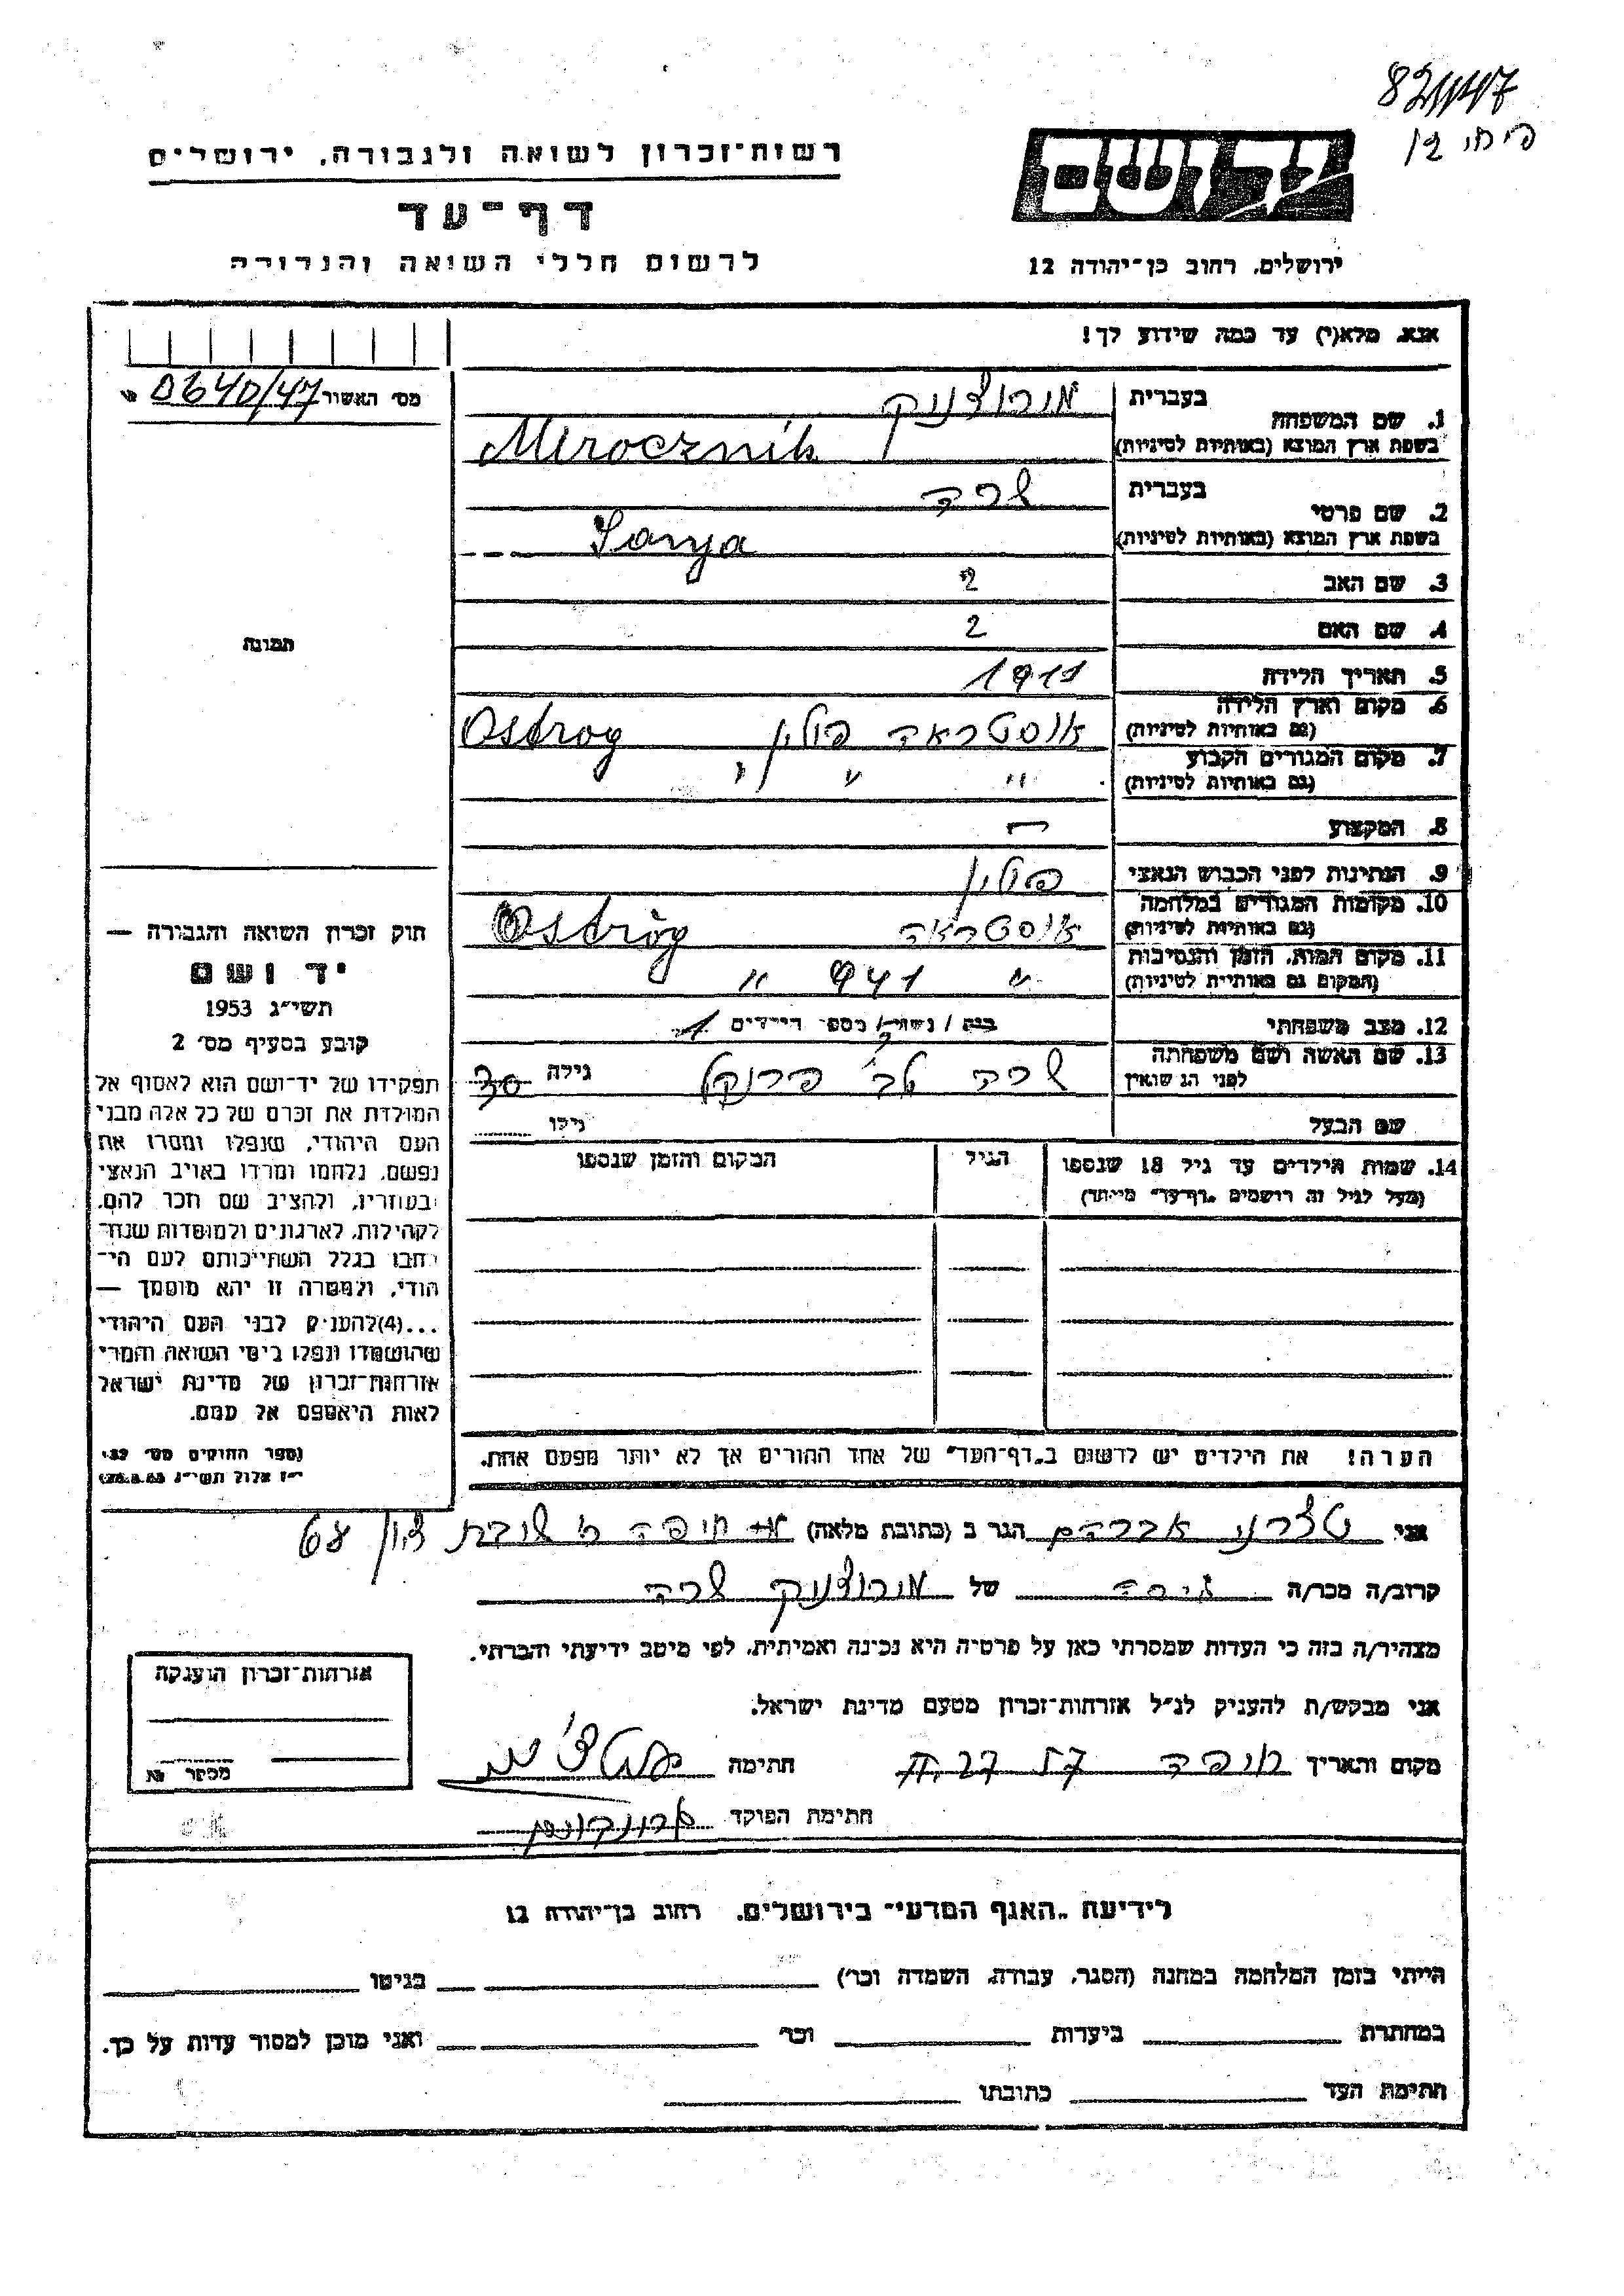 רשות־זכרון לשואה ולגבורה, ירושלים
דף־עד
לרשום חללי השואה והגבורה
יד ושם
ירושלים, רחוב בן־יהודה 12
אנא, מלא(י) עד כמה שידוע לך!
מס׳ האשור 0640/47
1. שם המשפחה בעברית מירוצניק
בשפת ארץ המוצא (באותיות לטיניות) Mirocznik
2. שם פרטי בעברית שרה
בשפת ארץ המוצא (באותיות לטיניות) Sonya
3. שם האב ?
4. שם האם ?
5. תאריך הלידה 1911
6. מקום וארץ הלידה אוסטראה פולין Ostrog
(גם באותיות לטיניות)
7. מקום המגורים הקבוע " " "
(גם באותיות לטיניות)
8. המקצוע —
9. הנתינות לפני הכבוש הנאצי פולין
10. מקומות המגורים במלחמה אוסטראה Ostróg
(גם באותיות לטיניות)
11. מקום המות, הזמן והנסיבות " 941 "
(המקום גם באותיות לטיניות)
12. מצב משפחתי רווק / נשוי / מספר הילדים 1
13. שם האשה ושם משפחתה שרה לב׳ פרנקל גילה 30
לפני הנשואין
שם הבעל גילו
14. שמות הילדים עד גיל 18 שנספו הגיל המקום והזמן שנספו
(מעל לגיל זה רושמים „דף־עד" מיוחד)
הערה! את הילדים יש לרשום ב„דף־העד" של אחד ההורים אך לא יותר מפעם אחת.
תמונה
חוק זכרון השואה והגבורה —
יד ושם
תשי״ג 1953
קובע בסעיף מס׳ 2
תפקידו של יד־ושם הוא לאסוף אל
המולדת את זכרם של כל אלה מבני
העם היהודי, שנפלו ומסרו את
נפשם, נלחמו ומרדו באויב הנאצי
ובעוזריו, ולהציב שם וזכר להם,
לקהילות, לארגונים ולמוסדות שנח־
רבו בגלל השתייכותם לעם הי־
הודי, ולמטרה זו יהא מוסמך —
...(4) להעניק לבני העם היהודי
שהושמדו ונפלו בימי השואה והמרי
אזרחות־זכרון של מדינת ישראל
לאות היאספם אל עמם.
(ספר החוקים מס׳ 132
י״ז אלול תשי״ג 28.8.53)
אני אברהם הגר ב (כתובת מלאה) חיפה שיבת ציון 68
קרוב/ה מכר/ה גיסה של מירוצניק שרה
מצהיר/ה בזה כי העדות שמסרתי כאן על פרטיה היא נכונה ואמיתית, לפי מיטב ידיעתי והכרתי.
אני מבקש/ת להעניק לנ״ל אזרחות־זכרון מטעם מדינת ישראל.
מקום ותאריך חיפה חתימה
חתימת הפוקד
אזרחות־זכרון הוענקה
מספר №
לידיעת „האגף המדעי" בירושלים, רחוב בן־יהודה 12
הייתי בזמן המלחמה במחנה (הסגר, עבודה, השמדה וכו׳) בגיטו
במחתרת ביערות וכו׳ ואני מוכן למסור עדות על כך.
חתימת העד כתובתו